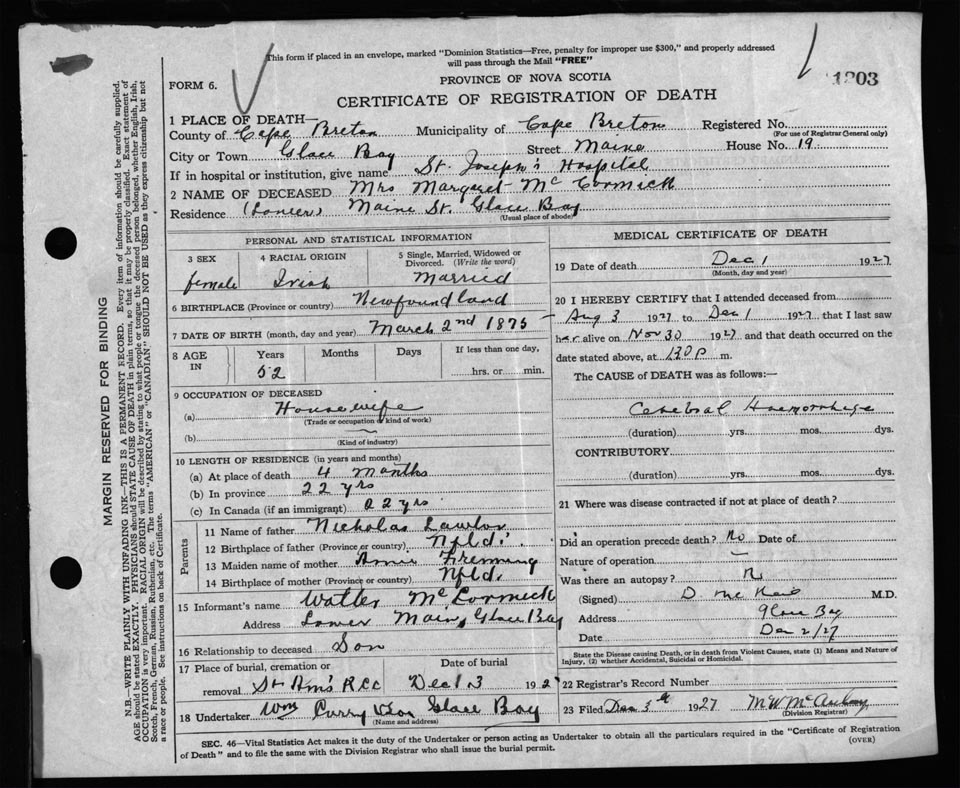 This form if placed in an envelope, marked "Dominion Statistics—Free, penalty for improper use $300," and properly addressed
will pass through the Mail "FREE"
FORM 6.
PROVINCE OF NOVA SCOTIA
1303
CERTIFICATE OF REGISTRATION OF DEATH
1 PLACE OF DEATH—
County of Cape Breton Municipality of Cape Breton Registered No.
(For use of Registrar General only)
City or Town Glace Bay Street Maine House No. 19
If in hospital or institution, give name St. Joseph's Hospital
2 NAME OF DECEASED Mrs Margaret McCormick
Residence (Lower) Maine St. Glace Bay
(Usual place of abode)
PERSONAL AND STATISTICAL INFORMATION
3 SEX female
4 RACIAL ORIGIN Irish
5 Single, Married, Widowed or Divorced. (Write the word) Married
6 BIRTHPLACE (Province or country) Newfoundland
7 DATE OF BIRTH (month, day and year) March 2nd 1875
8 AGE IN Years Months Days If less than one day,
52 hrs. or min.
9 OCCUPATION OF DECEASED
(a) Housewife
(Trade or occupation or kind of work)
(b)
(Kind of industry)
10 LENGTH OF RESIDENCE (in years and months)
(a) At place of death 4 months
(b) In province 22 yrs
(c) In Canada (if an immigrant) 22 yrs
Parents
11 Name of father Nicholas Lawlor
12 Birthplace of father (Province or country) Nfld.
13 Maiden name of mother Annie
14 Birthplace of mother (Province or country) Nfld.
15 Informant's name Walter McCormick
Address Lower Main, Glace Bay
16 Relationship to deceased Son
17 Place of burial, cremation or removal St Ann's RCC
Date of burial Dec 3 192
18 Undertaker Wm Curry Glace Bay
(Name and address)
MEDICAL CERTIFICATE OF DEATH
19 Date of death Dec 1 1927
(Month, day and year)
20 I HEREBY CERTIFY that I attended deceased from
Aug 3 1927 to Dec 1 1927 that I last saw
her alive on Nov 30 1927 and that death occurred on the
date stated above, at 130 p m.
The CAUSE of DEATH was as follows:—
Cerebral Haemorrhage
(duration) yrs. mos. dys.
CONTRIBUTORY
(duration) yrs. mos. dys.
21 Where was disease contracted if not at place of death?
Did an operation precede death? No Date of
Nature of operation —
Was there an autopsy? No
(Signed) D. M.D.
Address Glace Bay
Date Dec 2/27
State the Disease causing Death, or in death from Violent Causes, state (1) Means and Nature of
Injury, (2) whether Accidental, Suicidal or Homicidal.
22 Registrar's Record Number
23 Filed Dec 3rd 1927 M W
(Division Registrar)
SEC. 46—Vital Statistics Act makes it the duty of the Undertaker or person acting as Undertaker to obtain all the particulars required in the "Certificate of Registration
of Death" and to file the same with the Division Registrar who shall issue the burial permit.
(OVER)
MARGIN RESERVED FOR BINDING
N.B.—WRITE PLAINLY WITH UNFADING INK—THIS IS A PERMANENT RECORD. Every item of information should be carefully supplied.
AGE should be stated EXACTLY. PHYSICIANS should STATE CAUSE OF DEATH in plain terms, so that it may be properly classified. Exact statement of
OCCUPATION is very important. RACIAL ORIGIN will be described by stating to what people or tongue the deceased person belonged, whether English, Irish,
Scotch, French, German, Russian, Ruthenian, etc. The terms "AMERICAN" or "CANADIAN" SHOULD NOT BE USED as they express citizenship but not
a race or people. See instructions on back of Certificate.